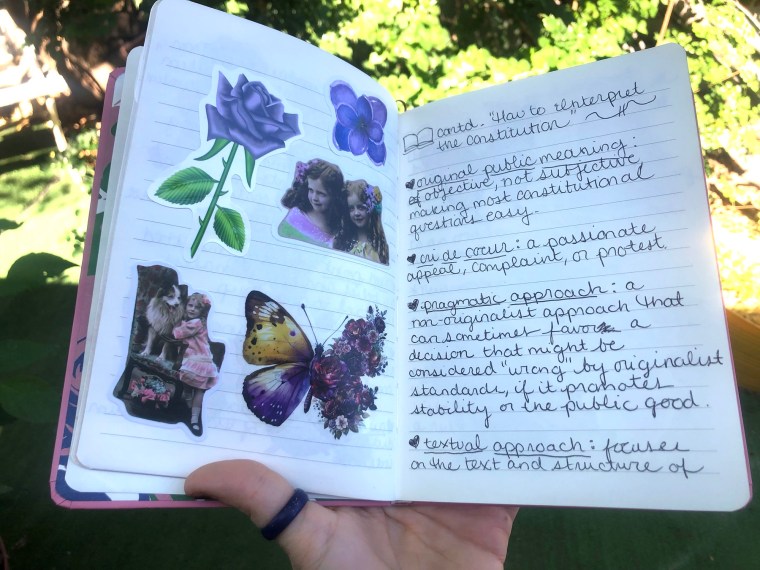 contd. "How to Interpret
the constitution"
original public meaning:
objective, not subjective,
making most constitutional
questions easy.
cri de coeur: a passionate
appeal, complaint, or protest.
pragmatic approach: a
non-originalist approach that
can sometimes favor a
decision that might be
considered "wrong" by originalist
standards, if it promotes
stability or the public good.
textual approach: focuses
on the text and structure of